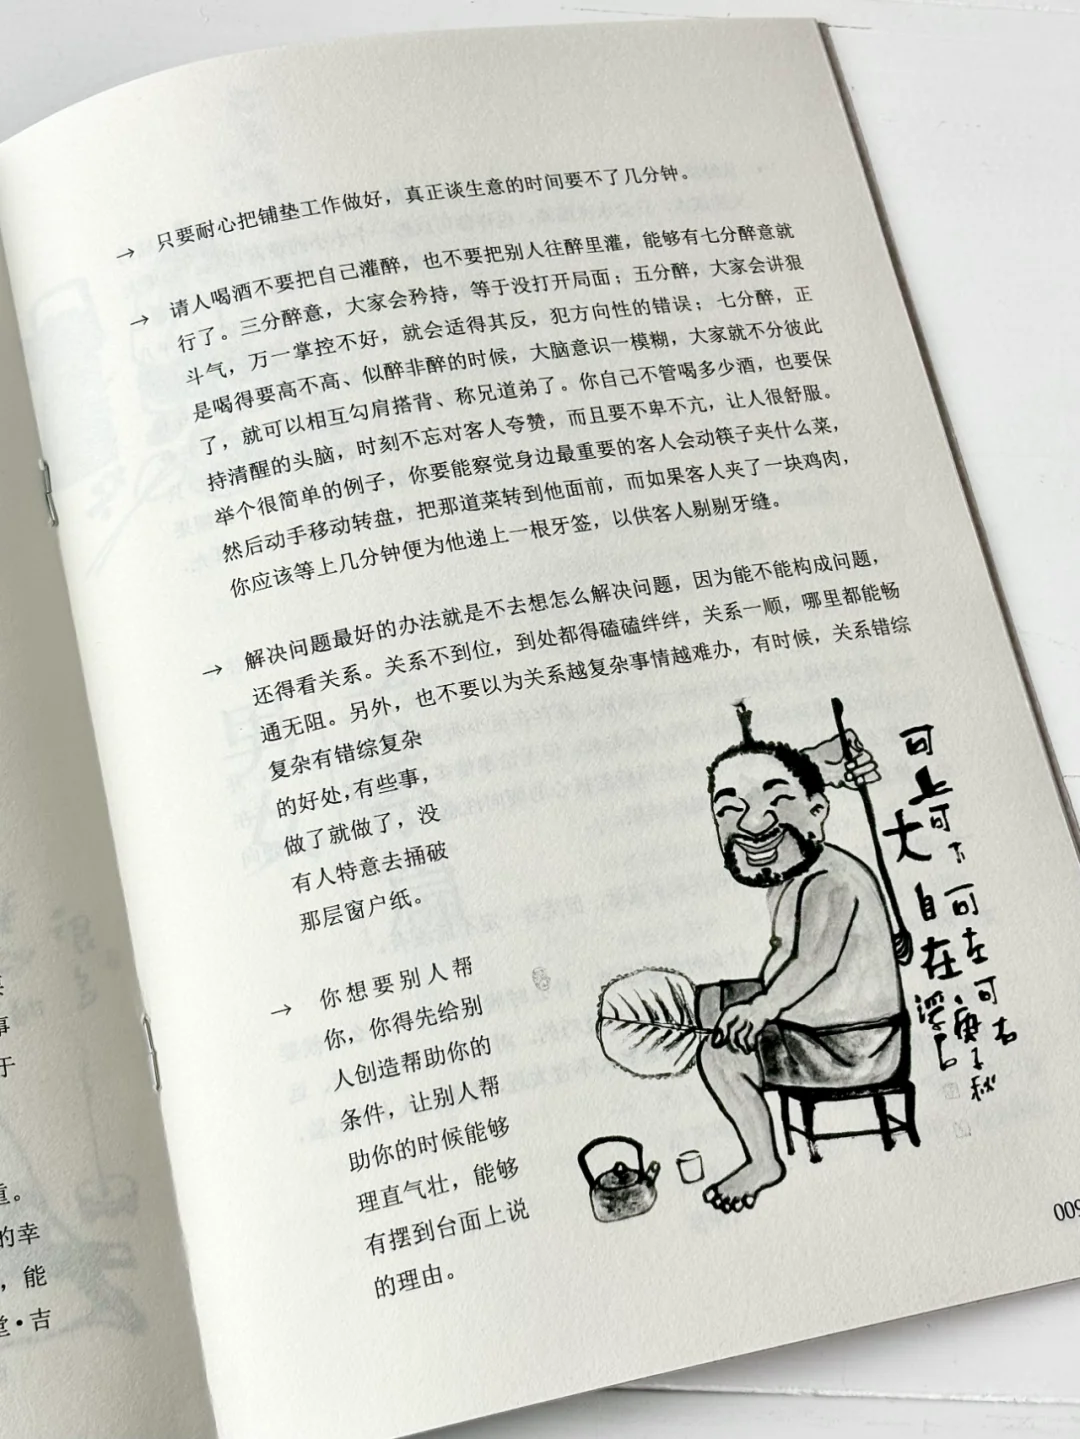 事
于
重。
的幸
，能
堂·吉
→ 只要耐心把铺垫工作做好，真正谈生意的时间要不了几分钟。
→ 请人喝酒不要把自己灌醉，也不要把别人往醉里灌，能够有七分醉意就
行了。三分醉意，大家会矜持，等于没打开局面；五分醉，大家会讲狠
斗气，万一掌控不好，就会适得其反，犯方向性的错误；七分醉，正
是喝得要高不高、似醉非醉的时候，大脑意识一模糊，大家就不分彼此
了，就可以相互勾肩搭背、称兄道弟了。你自己不管喝多少酒，也要保
持清醒的头脑，时刻不忘对客人夸赞，而且要不卑不亢，让人很舒服。
举个很简单的例子，你要能察觉身边最重要的客人会动筷子夹什么菜，
然后动手移动转盘，把那道菜转到他面前，而如果客人夹了一块鸡肉，
你应该等上几分钟便为他递上一根牙签，以供客人剔剔牙缝。
→ 解决问题最好的办法就是不去想怎么解决问题，因为能不能构成问题，
还得看关系。关系不到位，到处都得磕磕绊绊，关系一顺，哪里都能畅
通无阻。另外，也不要以为关系越复杂事情越难办，有时候，关系错综
复杂有错综复杂
的好处，有些事，
做了就做了，没
有人特意去捅破
那层窗户纸。
→ 你想要别人帮
你，你得先给别
人创造帮助你的
条件，让别人帮
助你的时候能够
理直气壮，能够
有摆到台面上说
的理由。
可上可下
可左可右
大自在
庚子秋
009